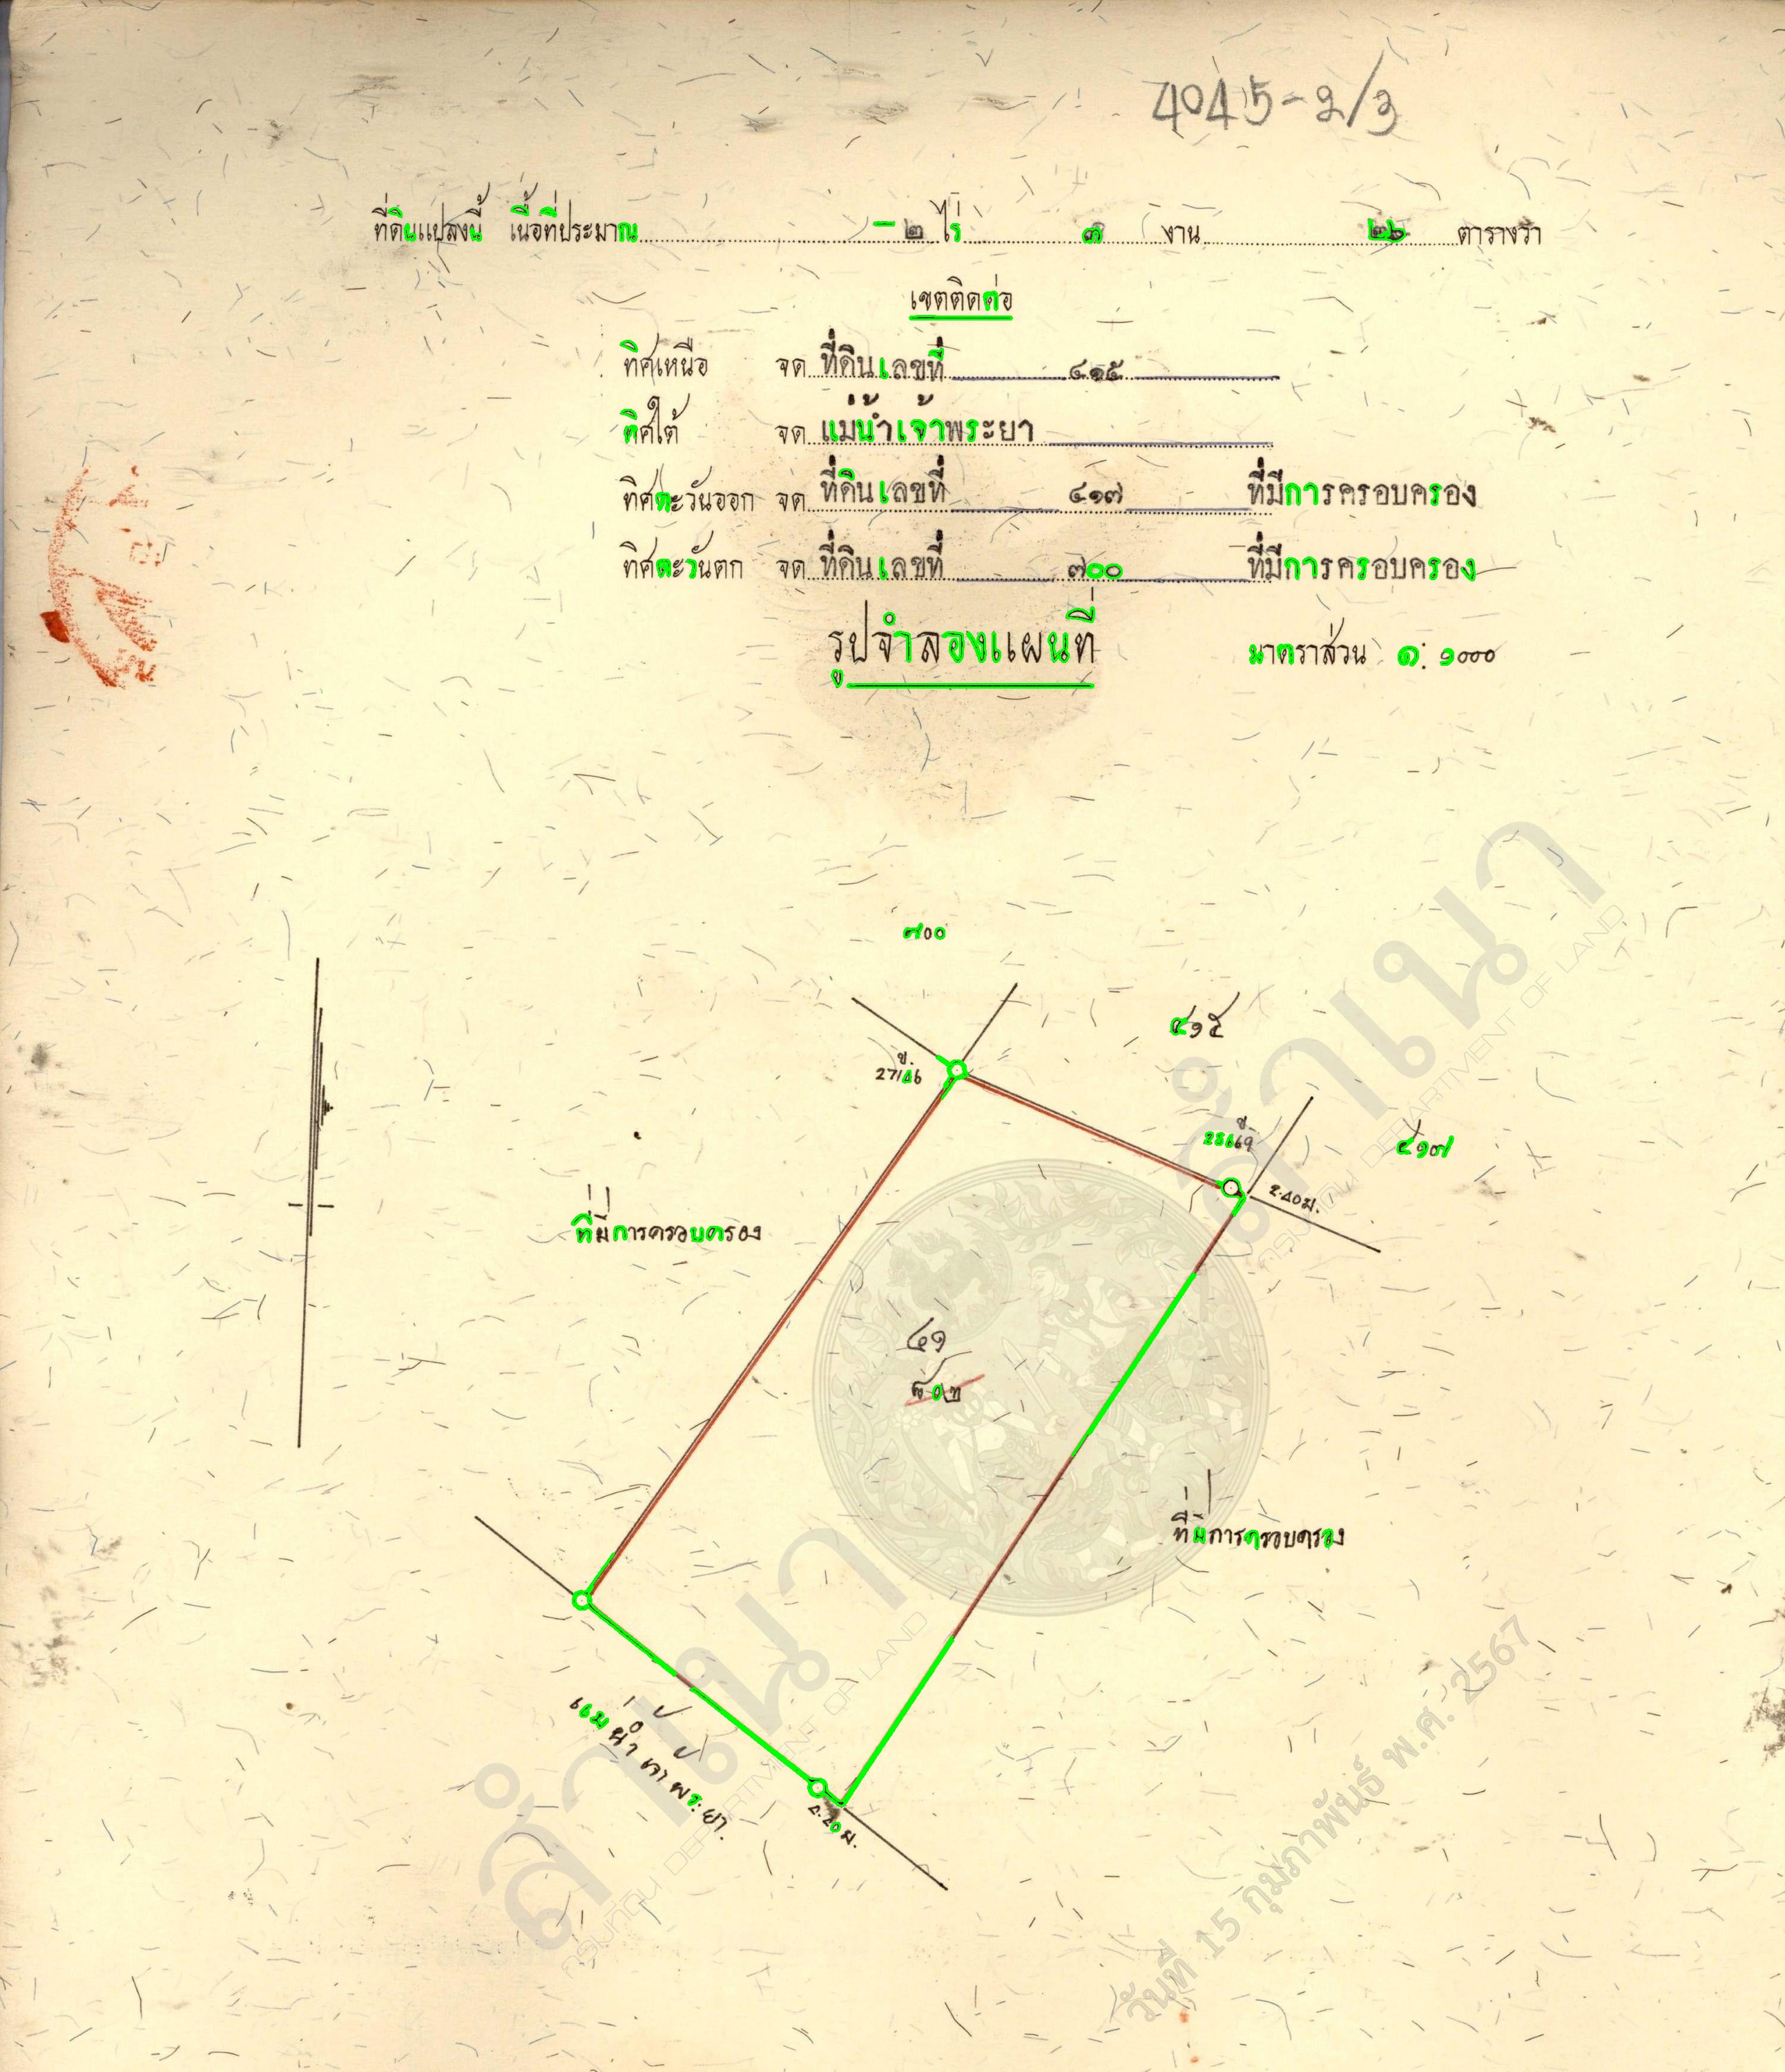 4045-2/3
ที่ดินแปลงนี้ เนื้อที่ประมาณ - ๒ ไร่ ๓ งาน ๒๖ ตารางวา
เขตติดต่อ
ทิศเหนือ จด ที่ดินเลขที่ ๔๑๕
ทิศใต้ จด แม่น้ำเจ้าพระยา
ทิศตะวันออก จด ที่ดินเลขที่ ๔๑๗ ที่มีการครอบครอง
ทิศตะวันตก จด ที่ดินเลขที่ ๗๐๐ ที่มีการครอบครอง
รูปจำลองแผนที่ มาตราส่วน ๑: ๑๐๐๐
๗๐๐
๔๑๕
ข.
ข.
๔๑๗
2.40ม.
ที่มีการครอบครอง
๔๑
ที่มีการครอบครอง
แม่น้ำเจ้าพระยา.
4.20 ม.
สำเนา
กรมที่ดิน DEPARTMENT OF LAND
สำเนา
กรมที่ดิน DEPARTMENT OF LAND
วันที่ 15 กุมภาพันธ์ พ.ศ. 2567